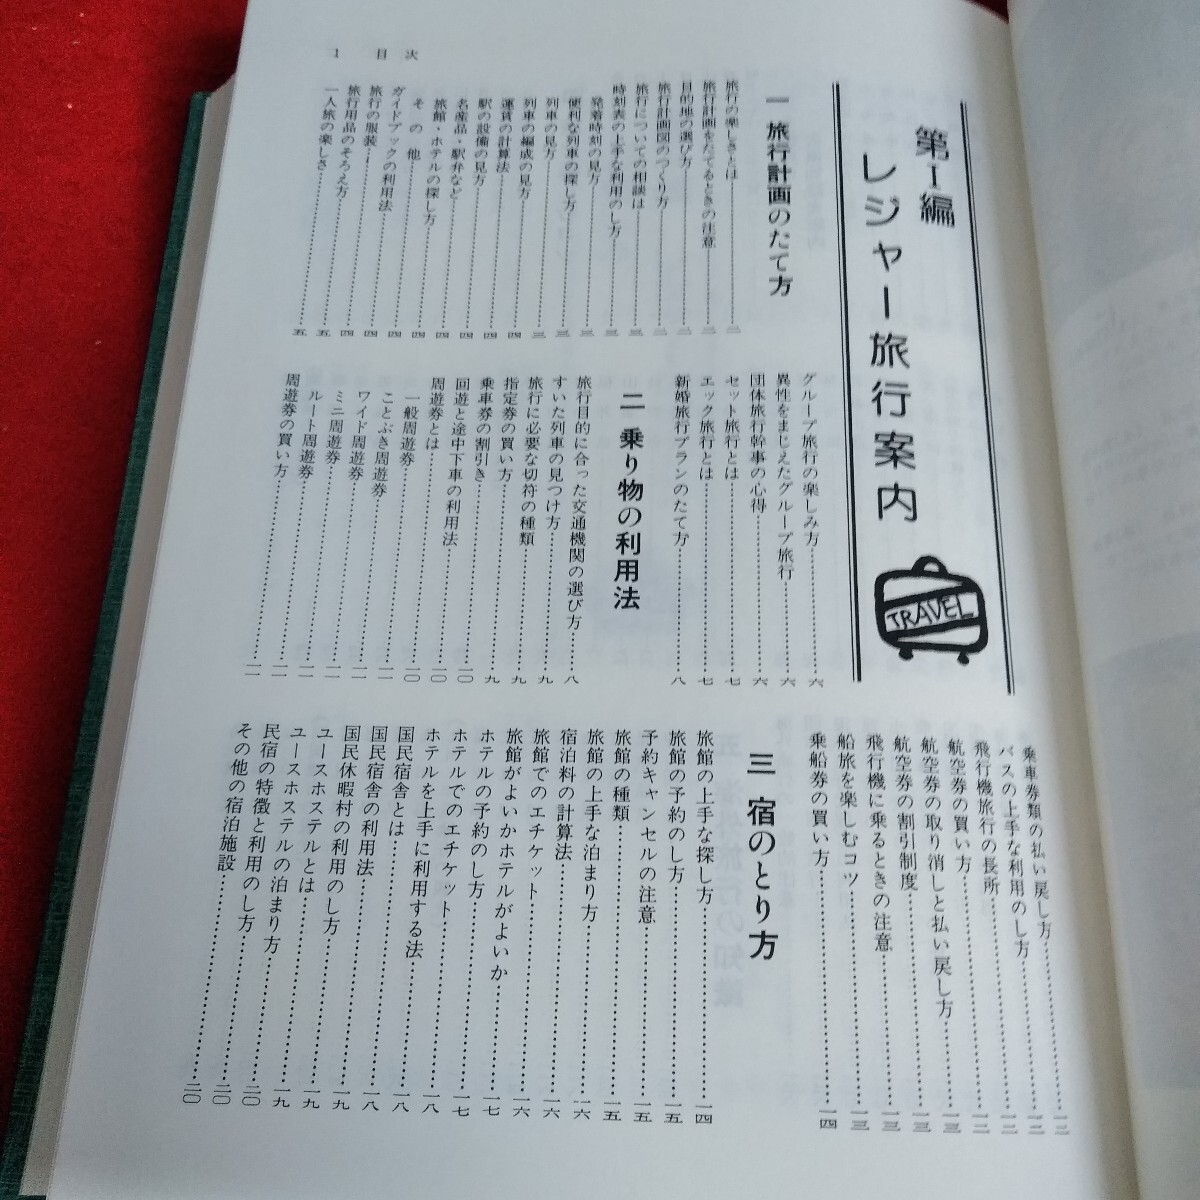 1 目次
第Ⅰ編
レジャー旅行案内
TRAVEL
一 旅行計画のたて方
旅行の楽しさとは……二
旅行計画をたてるときの注意……二
目的地の選び方……二
旅行計画図のつくり方……二
旅行についての相談は……三
時刻表の上手な利用のし方……三
発着時刻の見方……三
便利な列車の探し方……三
列車の見方……三
列車の編成の見方……三
運賃の計算法……四
駅の設備の見方……四
名産品・駅弁など……四
旅館・ホテルの探し方……四
その他……四
ガイドブックの利用法……四
旅行の服装……四
旅行用品のそろえ方……四
一人旅の楽しさ……五
……五
グループ旅行の楽しみ方……六
異性をまじえたグループ旅行……六
団体旅行幹事の心得……六
セット旅行とは……七
エック旅行とは……七
新婚旅行プランのたて方……八
二 乗り物の利用法
旅行目的に合った交通機関の選び方……八
すいた列車の見つけ方……九
旅行に必要な切符の種類……九
指定券の買い方……九
乗車券の割引き……九
回遊と途中下車の利用法……一〇
周遊券とは……一〇
一般周遊券……一〇
ことぶき周遊券……一一
ワイド周遊券……一一
ミニ周遊券……一一
ルート周遊券……一一
周遊券の買い方……一一
乗車券類の払い戻し方……一二
バスの上手な利用のし方……一二
飛行機旅行の長所……一二
航空券の買い方……一二
航空券の取り消しと払い戻し方……一三
航空券の割引制度……一三
飛行機に乗るときの注意……一三
船旅を楽しむコツ……一三
乗船券の買い方……一四
三 宿のとり方
旅館の上手な探し方……一四
旅館の予約のし方……一五
予約キャンセルの注意……一五
旅館の種類……一五
旅館の上手な泊まり方……一六
宿泊料の計算法……一六
旅館でのエチケット……一六
旅館がよいかホテルがよいか……一六
ホテルの予約のし方……一七
ホテルでのエチケット……一七
ホテルを上手に利用する法……一八
国民宿舎とは……一八
国民宿舎の利用法……一八
国民休暇村の利用のし方……一九
ユースホステルとは……一九
ユースホステルの泊まり方……一九
民宿の特徴と利用のし方……二〇
その他の宿泊施設……二〇